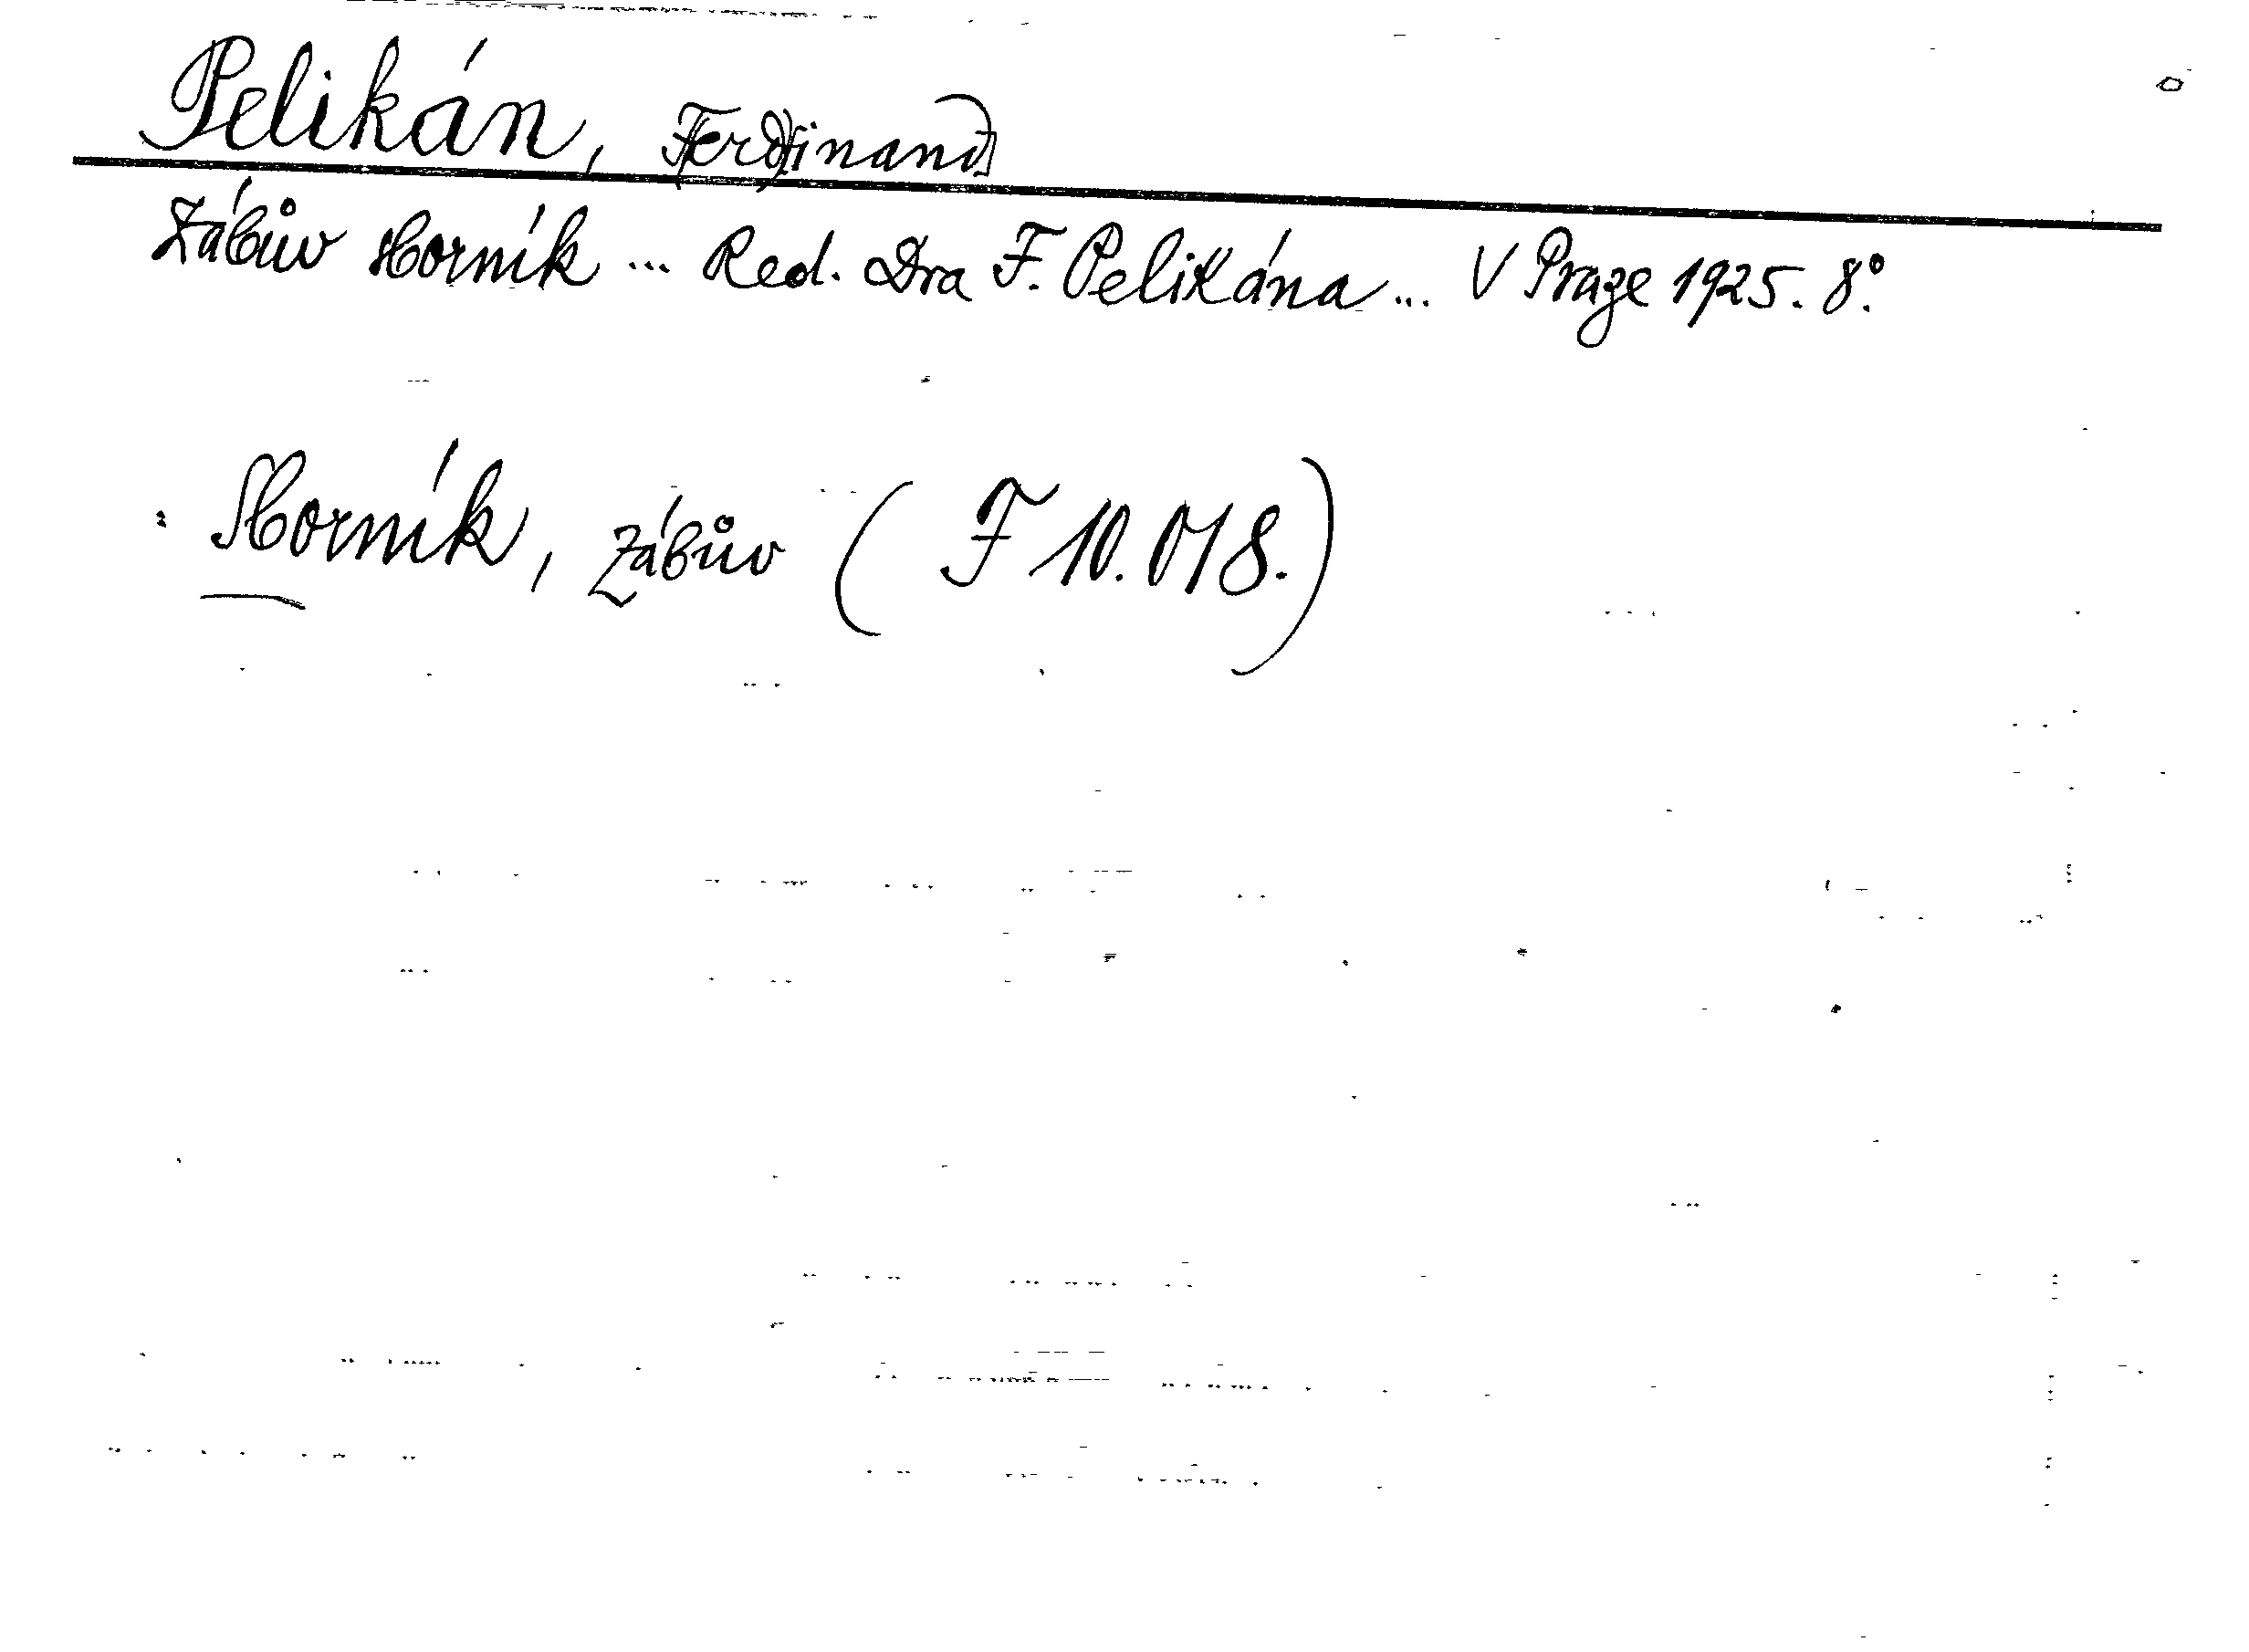 Pelikán, Ferdinand
Zábův sborník ... Red. Dra F. Pelikána ... V Praze 1925. 8°.
: Sborník, Zábův (F 10.018.)